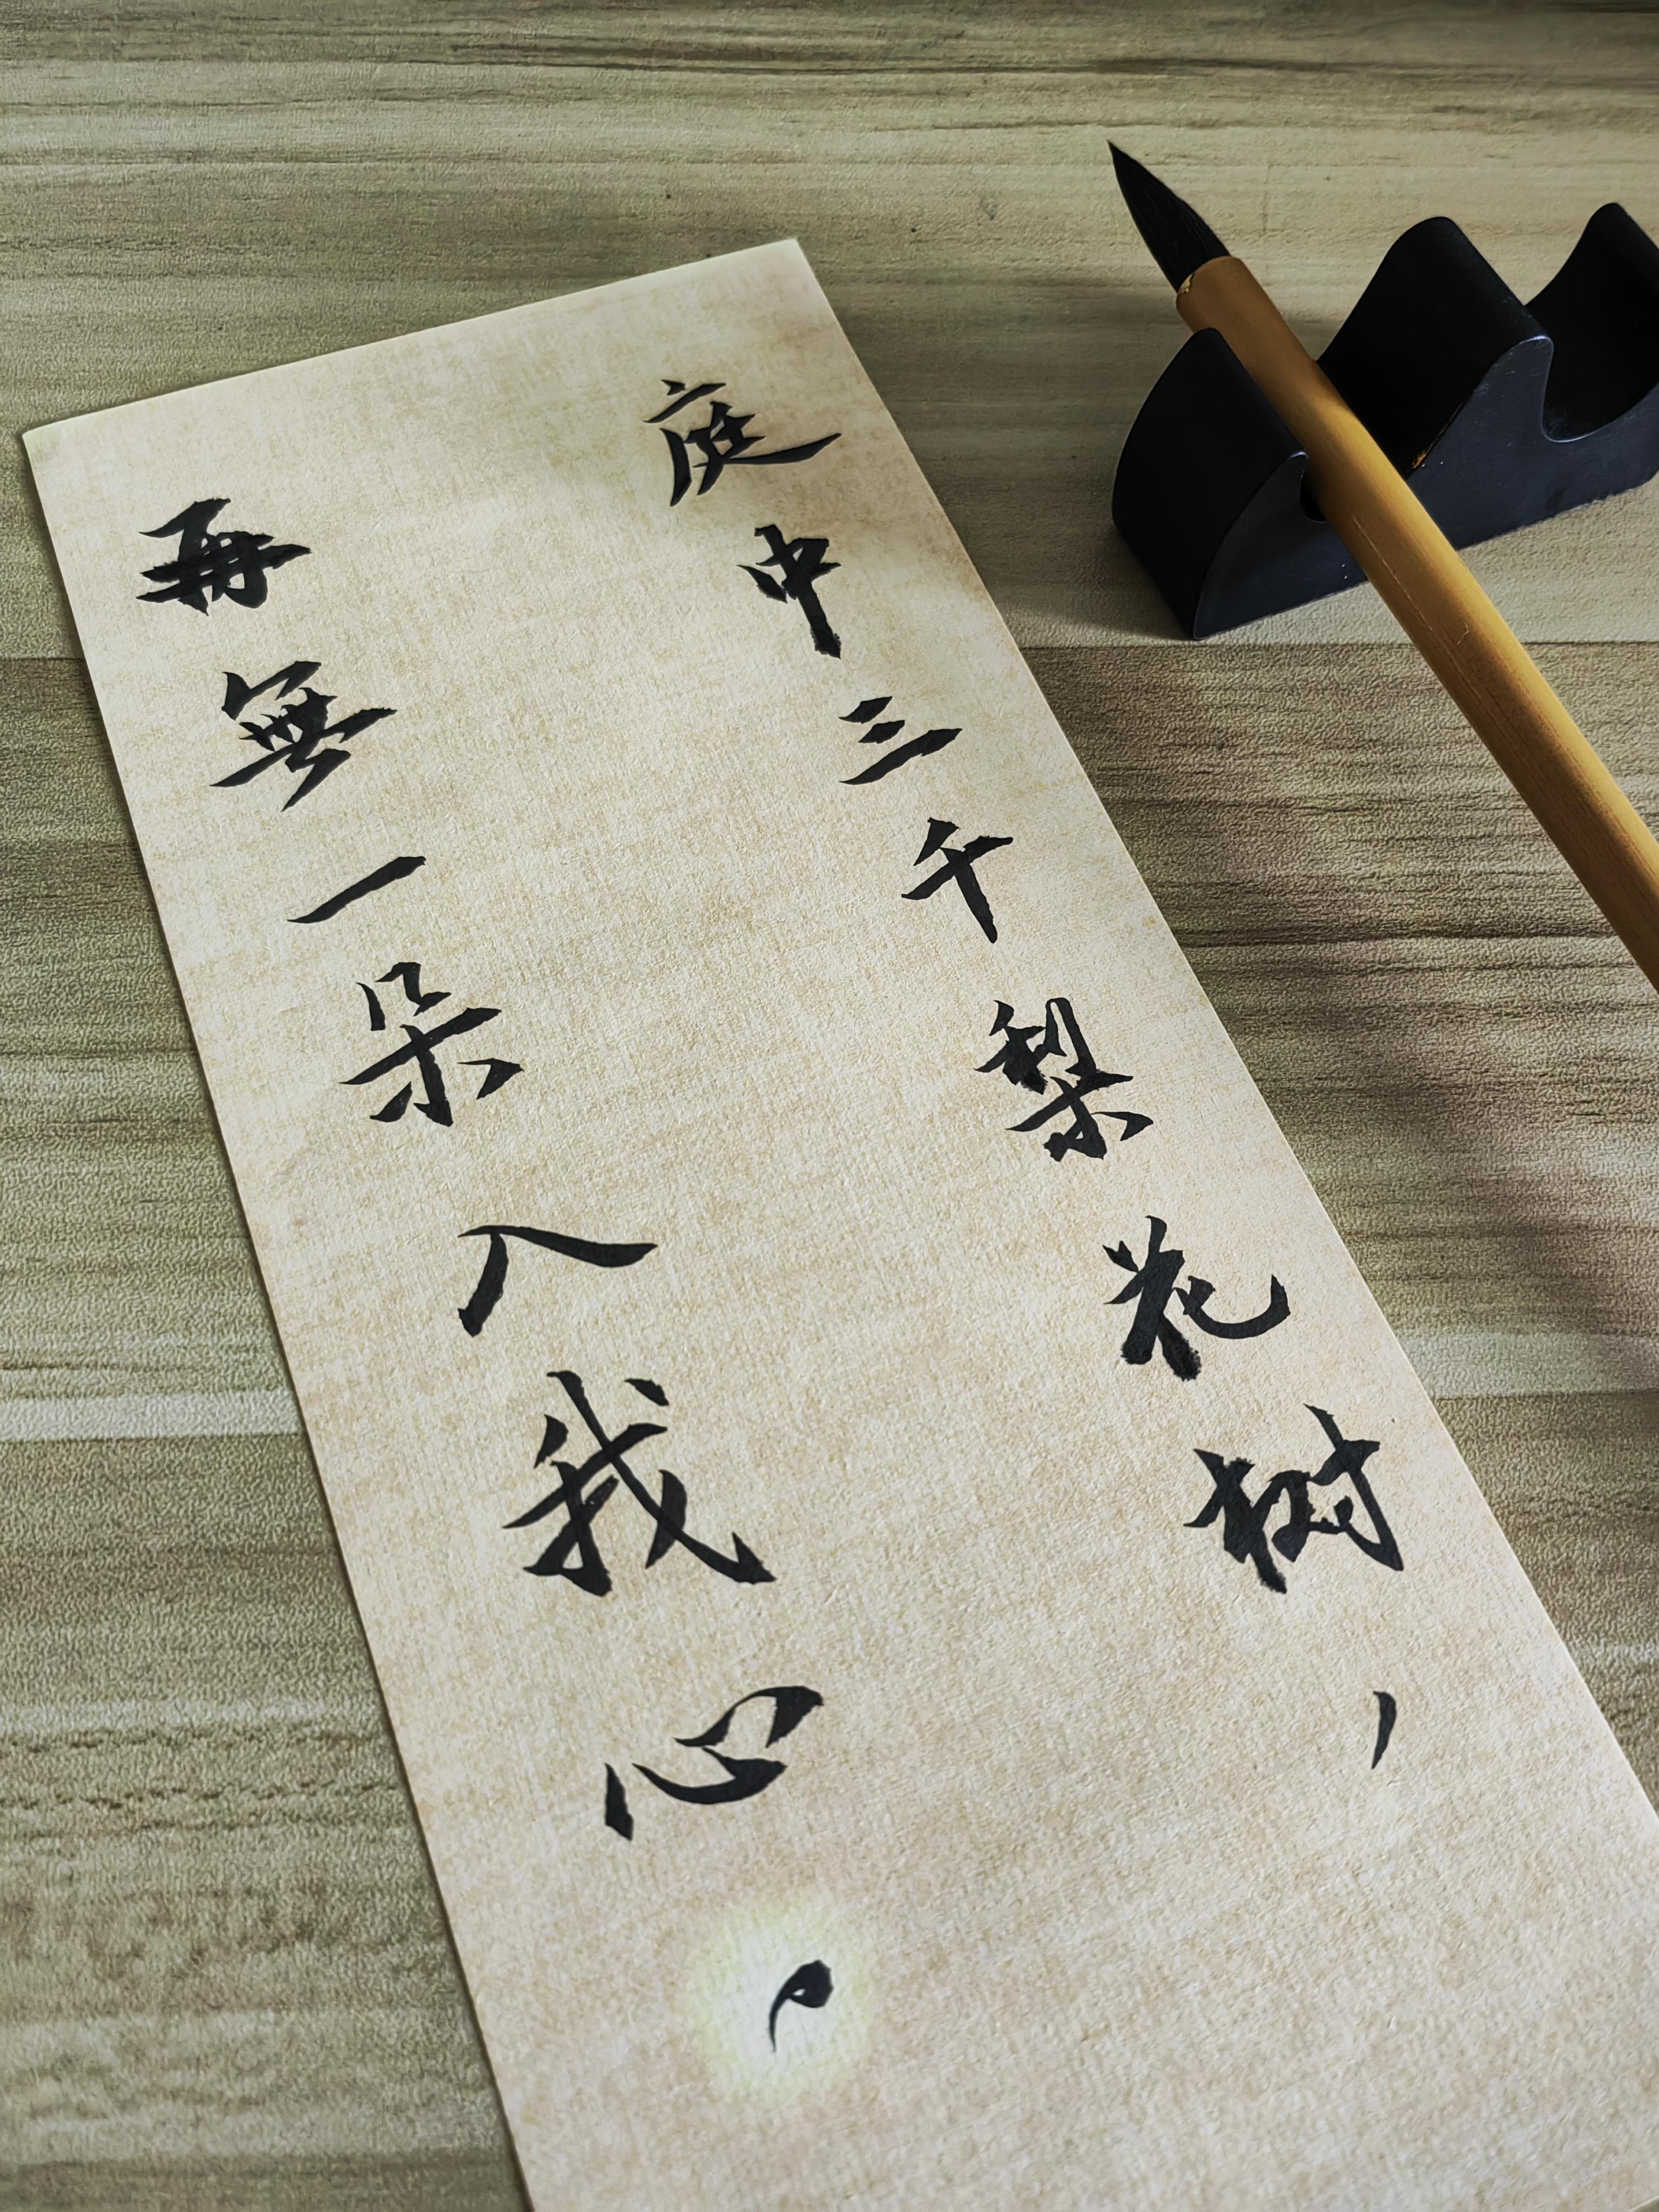 庭中三千梨花树,
再無一朵入我心,